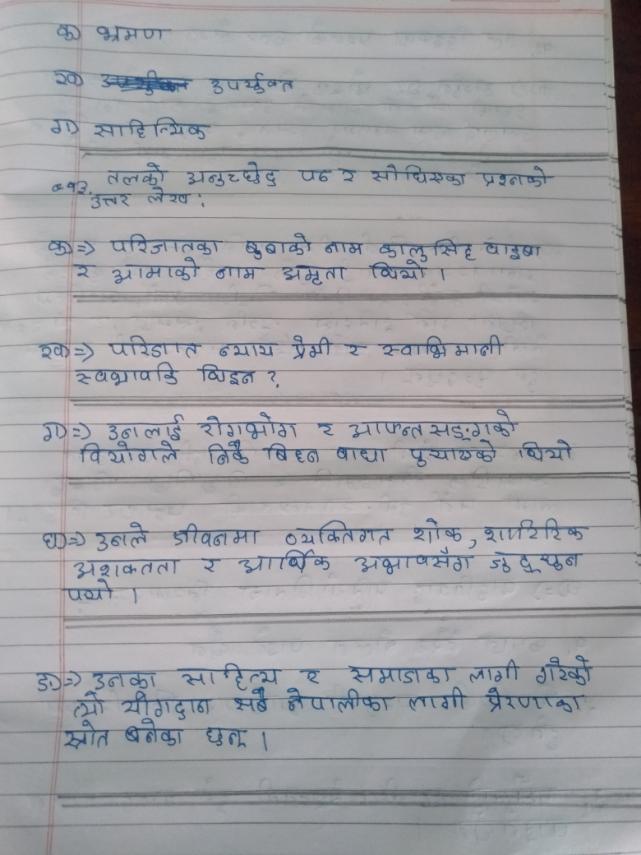 क) भ्रमण
ख) उपर्युक्त
ग) साहित्यिक
तलको अनुच्छेद पढ र सोधिएका प्रश्नको
उत्तर लेख :
क) => परिजातका बुबाको नाम कालुसिह वाइबा
र आमाको नाम अमृता थियो ।
ख) => परिजात न्याय प्रेमी र स्वाभिमानी
स्वभावकि थिइन ?
ग) => उनलाई रोगभोग र आफन्तसङ्गको
वियोगले निकै बिघ्न बाधा पुर्‍याएको थियो
घ) => उनले जीवनमा व्यक्तिगत शोक, शारिरिक
अशक्तता र आर्थिक अभावसँग जुद्नु
पर्यो ।
ङ) => उनका साहित्य र समाजका लागी गरेको
त्यो योगदान सबै नेपालीका लागी प्रेरणाका
स्रोत बनेका छन् ।